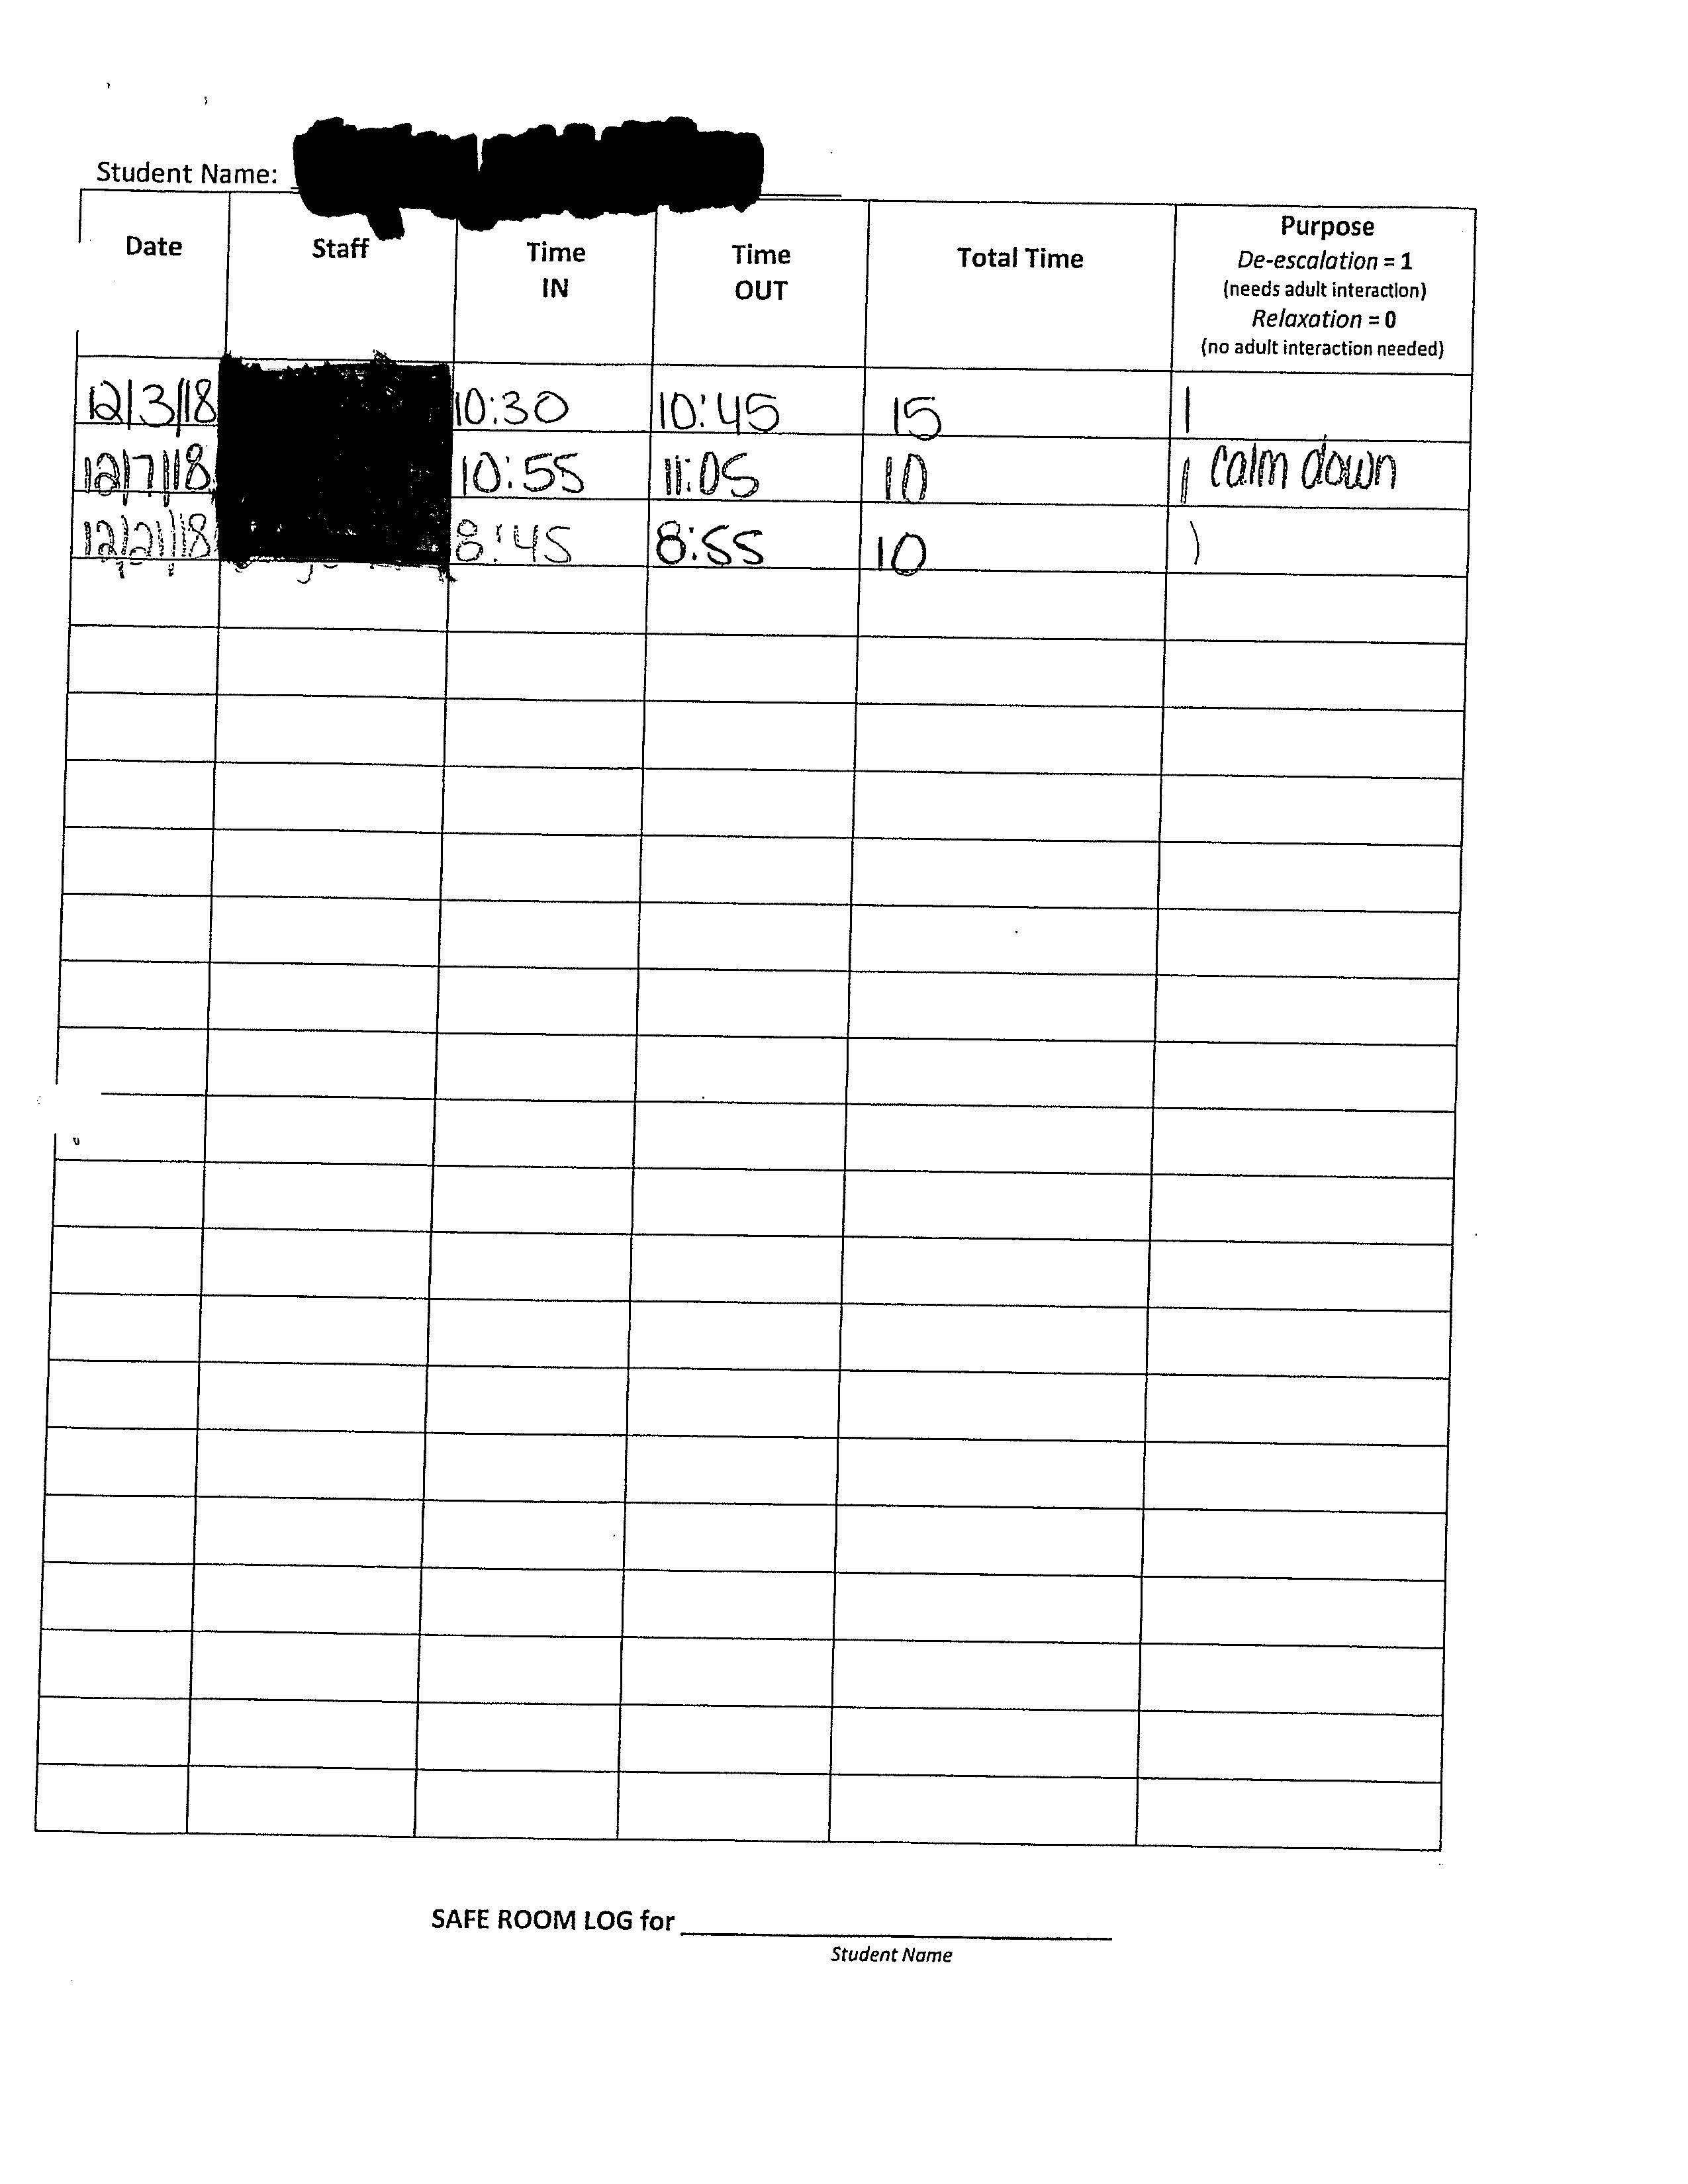 Student Name:
Date Staff Time IN Time OUT Total Time Purpose
De-escalation = 1
(needs adult interaction)
Relaxation = 0
(no adult interaction needed)
12/3/18 10:30 10:45 15 1
12/7/18 10:55 11:05 10 1 calm down
12/21/18 8:45 8:55 10 1
SAFE ROOM LOG for
Student Name